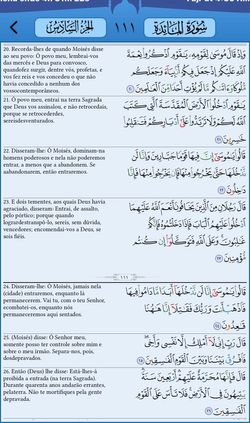 الجزء السادس
١١١
سورة المائدة
20. Recorda-lhes de quando Moisés disse
ao seu povo: Ó povo meu, lembrai-vos
das mercês e Deus para convosco,
quandofez surgir, dentre vós, profetas, e
vos fez reis e vos concedeu o que não
havia concedido a nenhum dos
vossoscontemporâneos.
وَإِذْ قَالَ مُوسَىٰ لِقَوْمِهِۦ يَٰقَوْمِ ٱذْكُرُوا۟ نِعْمَةَ
ٱللَّهِ عَلَيْكُمْ إِذْ جَعَلَ فِيكُمْ أَنۢبِيَآءَ وَجَعَلَكُم
مُّلُوكًا وَءَاتَىٰكُم مَّا لَمْ يُؤْتِ أَحَدًا مِّنَ ٱلْعَٰلَمِينَ ٢٠
21. Ó povo meu, entrai na terra Sagrada
que Deus vos assinalou, e não retrocedais,
porque se retrocederdes,
sereisdesventurados.
يَٰقَوْمِ ٱدْخُلُوا۟ ٱلْأَرْضَ ٱلْمُقَدَّسَةَ ٱلَّتِى كَتَبَ
ٱللَّهُ لَكُمْ وَلَا تَرْتَدُّوا۟ عَلَىٰٓ أَدْبَارِكُمْ فَتَنقَلِبُوا۟
خَٰسِرِينَ ٢١
22. Disseram-lhe: Ó Moisés, dominam-na
homens poderosos e nela não poderemos
entrar, a menos que a abandonem. Se
aabandonarem, então entraremos.
قَالُوا۟ يَٰمُوسَىٰٓ إِنَّ فِيهَا قَوْمًا جَبَّارِينَ وَإِنَّا لَن
نَّدْخُلَهَا حَتَّىٰ يَخْرُجُوا۟ مِنْهَا فَإِن يَخْرُجُوا۟ مِنْهَا فَإِنَّا
دَٰخِلُونَ ٢٢
23. E dois tementes, aos quais Deus havia
agraciado, disseram: Entrai, de assalto,
pelo pórtico; porque quando
logrardestranspô-lo, sereis, sem dúvida,
vencedores; encomendai-vos a Deus, se
sois fiéis.
قَالَ رَجُلَانِ مِنَ ٱلَّذِينَ يَخَافُونَ أَنْعَمَ ٱللَّهُ عَلَيْهِمَا
ٱدْخُلُوا۟ عَلَيْهِمُ ٱلْبَابَ فَإِذَا دَخَلْتُمُوهُ فَإِنَّكُمْ
غَٰلِبُونَ وَعَلَى ٱللَّهِ فَتَوَكَّلُوٓا۟ إِن كُنتُم
مُّؤْمِنِينَ ٢٣
١١١
24. Disseram-lhe: Ó Moisés, jamais nela
(cidade) entraremos, enquanto lá
permanecerem. Vai tu, com o teu Senhor,
ecombatei-os, enquanto nós
permaneceremos aqui sentados.
قَالُوا۟ يَٰمُوسَىٰٓ إِنَّا لَن نَّدْخُلَهَآ أَبَدًا مَّا دَامُوا۟ فِيهَا
فَٱذْهَبْ أَنتَ وَرَبُّكَ فَقَٰتِلَآ إِنَّا هَٰهُنَا
قَٰعِدُونَ ٢٤
25. (Moisés) disse: Ó Senhor meu,
somente posso ter controle sobre mim e
sobre o meu irmão. Separa-nos, pois,
dosdepravados.
قَالَ رَبِّ إِنِّى لَآ أَمْلِكُ إِلَّا نَفْسِى وَأَخِى
فَٱفْرُقْ بَيْنَنَا وَبَيْنَ ٱلْقَوْمِ ٱلْفَٰسِقِينَ ٢٥
26. Então (Deus) lhe disse: Está-lhes-á
proibida a entrada (na terra Sagrada).
Durante quarenta anos andarão errantes,
pelaterra. Não te mortifiques pela gente
depravada.
قَالَ فَإِنَّهَا مُحَرَّمَةٌ عَلَيْهِمْ أَرْبَعِينَ سَنَةً
يَتِيهُونَ فِى ٱلْأَرْضِ فَلَا تَأْسَ عَلَى ٱلْقَوْمِ
ٱلْفَٰسِقِينَ ٢٦